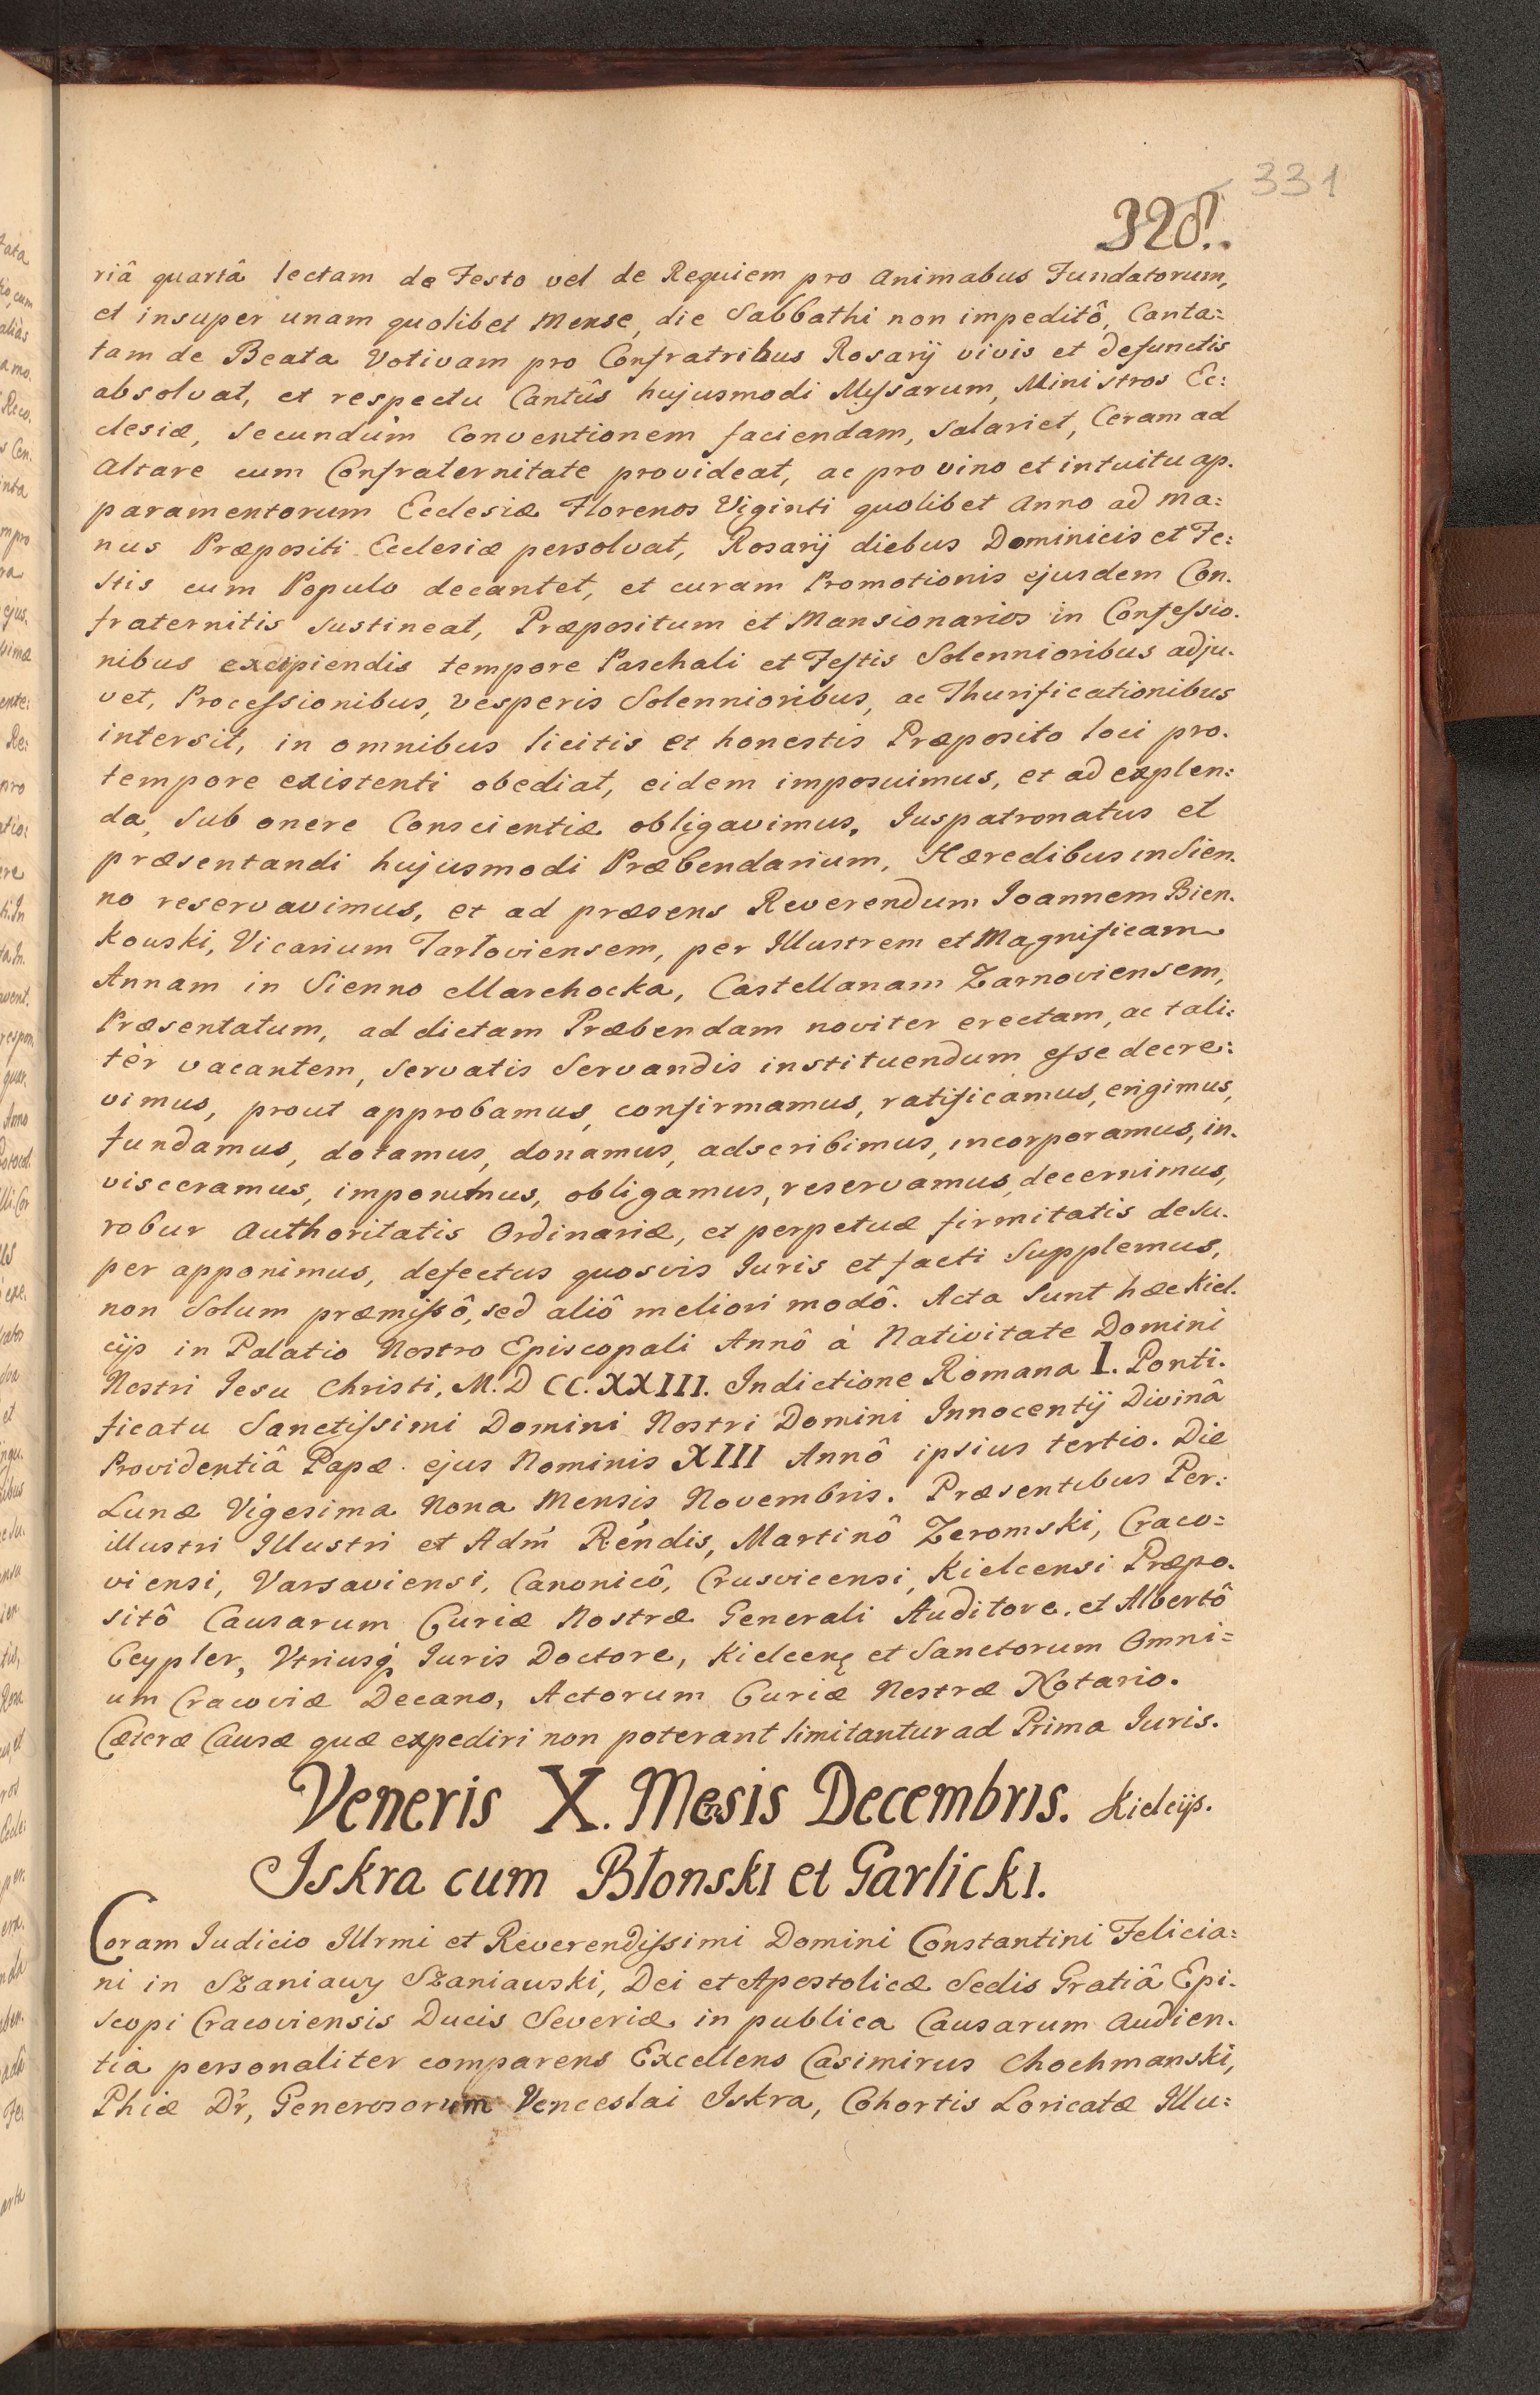 331
328.
riâ quartâ lectam de Festo vel de Requiem pro Animabus Fundatorum,
et insuper unam quolibet Mense, die Sabbathi non impeditô, Canta=
tam de Beata Votivam pro Confratribus Rosarij vivis et defunctis
absolvat, et respectu Cantûs hujusmodi Missarum, Ministros Ec:
clesiæ, Secundùm Conventionem faciendam, Salariet, Ceram ad
Altare cum Confraternitate provideat, ac pro vino et intuitu ap.
paramentorum Ecclesiæ Florenos Viginti quolibet Anno ad ma:
nus Præpositi Ecclesiæ persolvat, Rosarij diebus Dominicis et Fe:
stis cum Populo decantet, et curam Promotionis ejusdem Con.
fraternitis sustineat, Præpositum et Mansionarios in Confessio.
nibus excipiendis tempore Paschali et Festis Solennioribus adju.
vet, Processionibus, Vesperis Solennioribus, ac Thurificationibus
intersit, in omnibus licitis et honestis Præposito loci pro.
tempore existenti obediat, eidem imposuimus, et ad explen:
da, Sub onere Conscientiæ obligavimus, Juspatronatus et
præsentandi hujusmodi Præbendarium, Hæredibus in Sien.
no reservavimus, et ad præsens Reverendum Joannem Bien.
kouski, Vicarium Tarłoviensem, per Illustrem et Magnificam
Annam in Sienno Marchocka, Castellanam Zarnoviensem,
Præsentatum, ad dictam Præbendam noviter erectam, ac tali:
tèr vacantem, Servatis Servandis instituendum esse decre:
vimus, prout approbamus, confirmamus, ratificamus, erigimus,
fundamus, dotamus, donamus, adscribimus, incorporamus, in.
visceramus, imponimus, obligamus, reservamus, decernimus,
robur Authoritatis Ordinariæ, et perpetuæ firmitatis desu.
per apponimus, defectus quosvis Juris et facti Supplemus,
non Solum præmissô, sed aliô meliori modô. Acta Sunt hæc Kiel.
cijs in Palatio Nostro Episcopali Annô à Nativitate Domini
Nostri Jesu Christi, M.D CC.XXIII. Indictione Romana I. Ponti.
ficatu Sanctissimi Domini Nostri Domini Innocentij Divinâ
Providentiâ Papæ ejus Nominis XIII Annô ipsius tertio. Die
Lunæ Vigesima Nona Mensis Novembris. Præsentibus Per:
illustri Illustri et Adm̃ Réndis, Martinô Zeromski, Craco=
viensi, Varsaviensi, Canonicô, Crusvicensi, Kielcensi Præpo.
sitô Causarum Curiæ Nostræ Generali Auditore, et Albertô
Ceypler, Vtriusq́ Juris Doctore, Kielcenę et Sanctorum Omni=
um Cracoviæ Decano, Actorum Curiæ Nostræ Notario.
Cæteræ Causæ quæ expediri non poterant limitantur ad Prima Juris.
Veneris X. Mensis Decembris. Kielcijs.
Iskra cum Błonski et Garlicki.
Coram Judicio Illrmi et Reverendissimi Domini Constantini Felicia:
ni in Szaniawy Szaniawski, Dei et Apostolicæ Sedis Gratiâ Epi.
scopi Cracoviensis Ducis Severiæ in publica Causarum Audien.
tia personaliter comparens Excellens Casimirus Chochmanski,
Phiæ Dr, Generosorum Venceslai Iskra, Cohortis Loricatæ Illu: